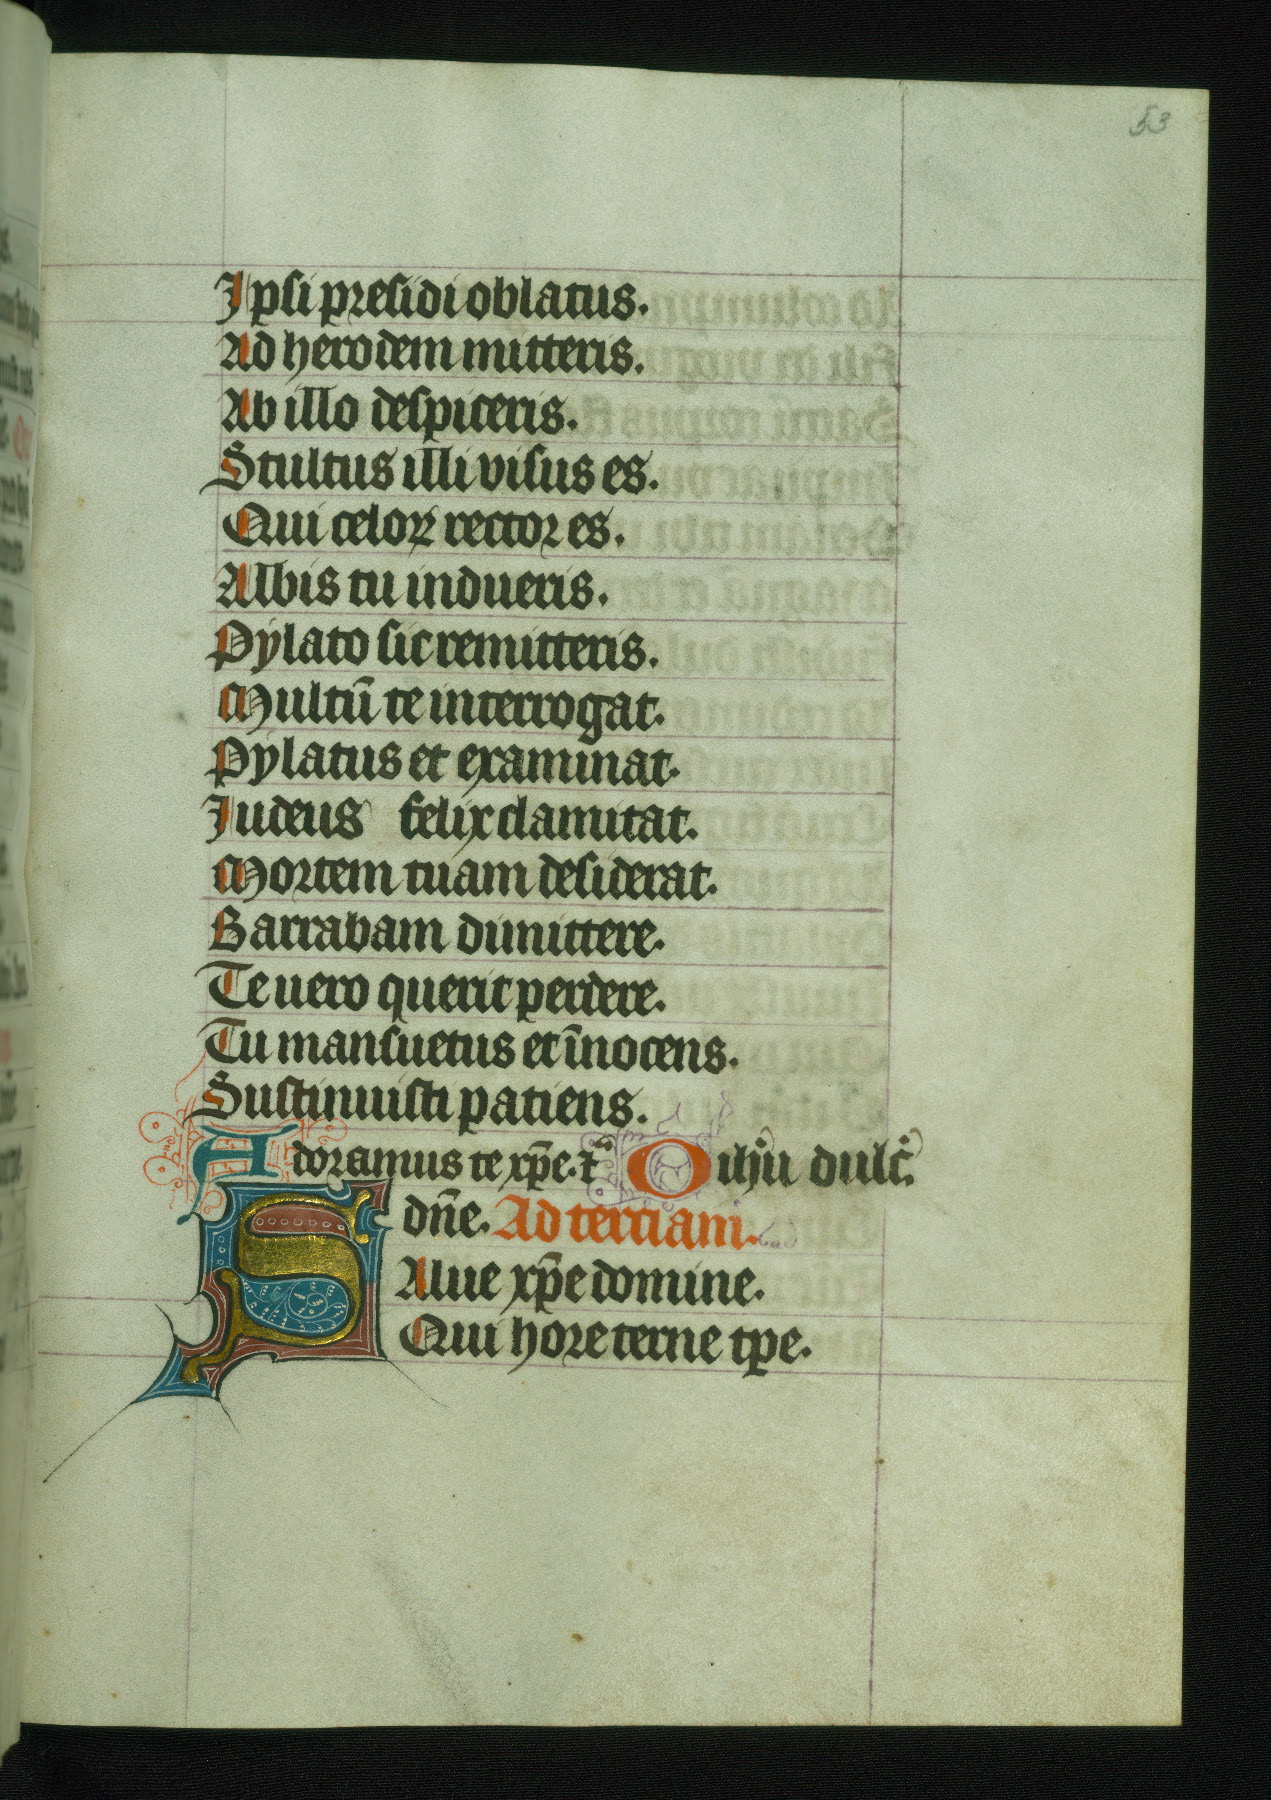 53
Ipsi presidi oblatus.
Ad herodem mitteris.
Ab illo despiceris.
Stultus illi visus es.
Qui celoꝝ rector es.
Albis tu indueris.
Pylato sic remitteris.
Multū te interrogat.
Pylatus et examinat.
Iudeus felix clamitat.
Mortem tuam desiderat.
Barrabam dimittere.
Te uero querit perdere.
Tu mansuetus et īnocens.
Sustinuisti patiens.
Adoramus te xp̄e. O ihū dulc̄.
dn̄e. Ad tertiam.
Salue xp̄e domine.
Qui hore terne tp̄e.